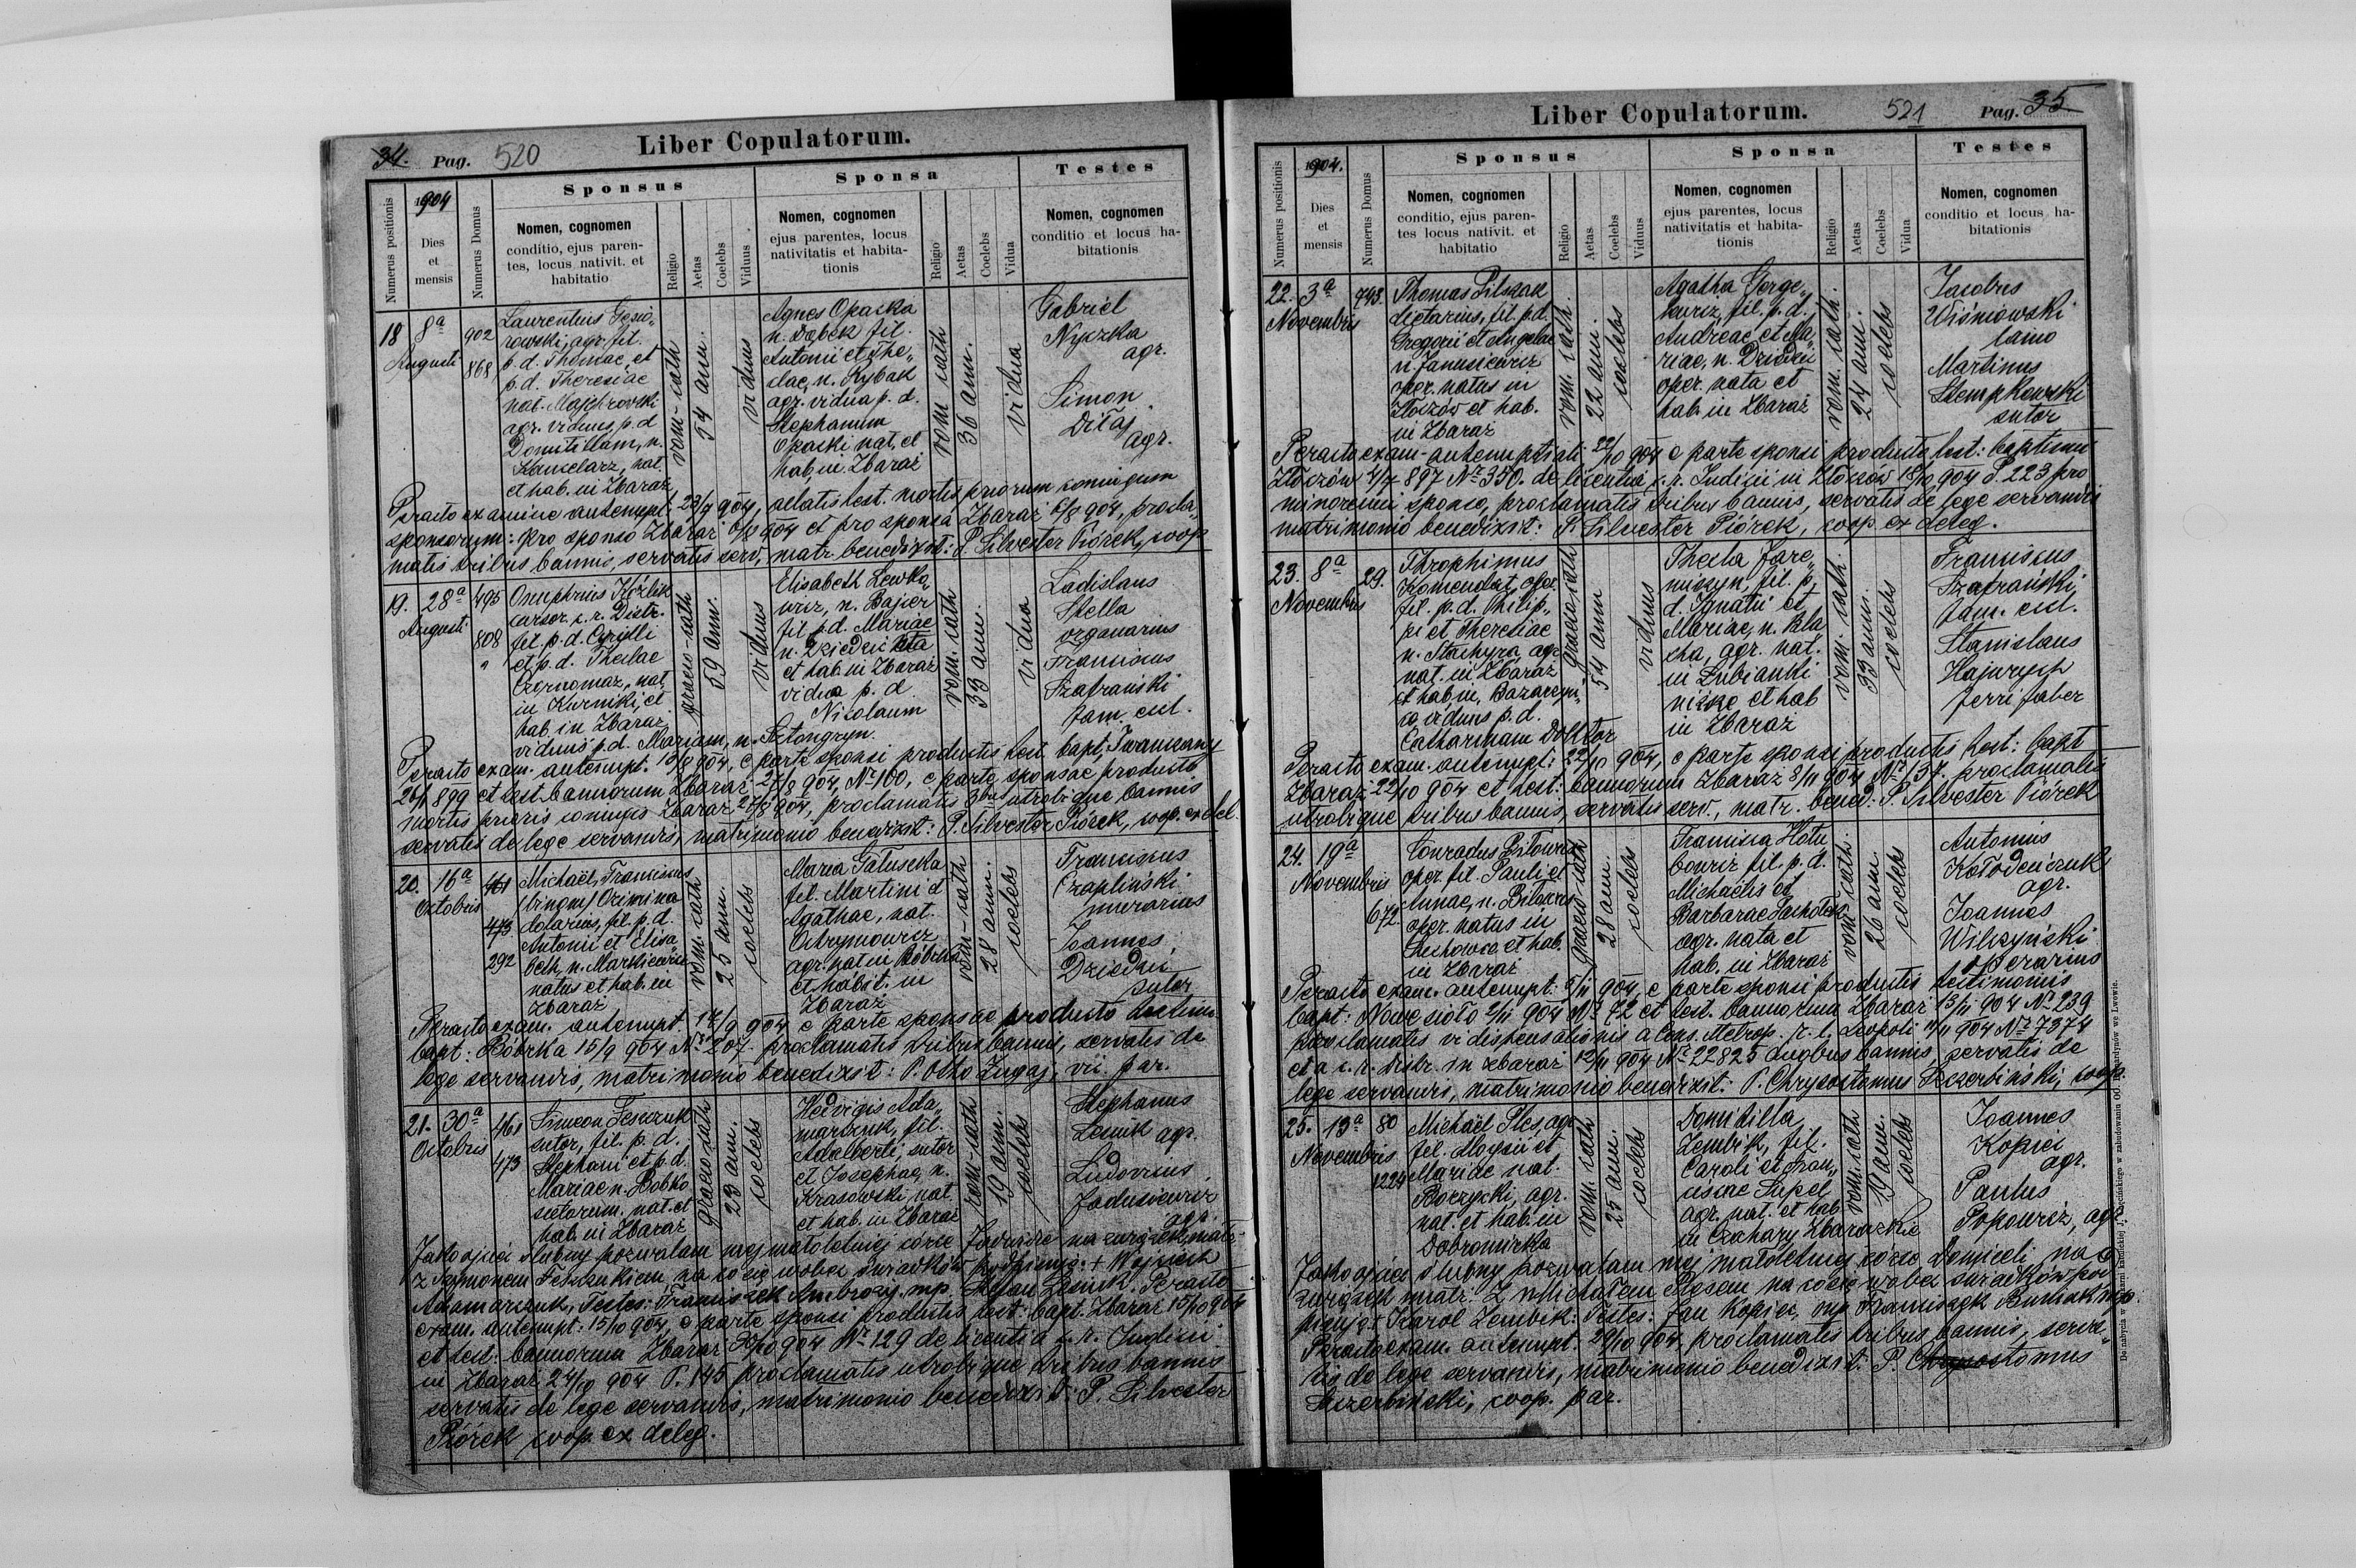 34. Pag. 520
Liber Copulatorum.
Numerus positionis
1904
Dies
et
mensis
Numerus Domus
Sponsus
Nomen, cognomen
conditio, ejus paren-
tes, locus nativit. et
habitatio
Religio
Aetas
Coelebs
Viduus
Sponsa
Nomen, cognomen
ejus parentes, locus
nativitatis et habita-
tionis
Religio
Aetas
Coelebs
Vidua
Testes
Nomen, cognomen
conditio et locus ha-
bitationis
18
8ª
Augusti
902
868
Laurentius
rowski, agr. fil.
p. d. Thomae, et
p. d. Theresiae
nat. Majchrovski
agr. viduus p. d
Domitillam, n.
Kanselarz, nat.
et hab. in Zbaraż
rom-cath
54 ann.
viduus
Agnes Opacka
n. Dąbek fil.
Antonii et The„
clae, n. Rybak
agr. vidua p. d.
Stephanum
Opacki nat. et
hab. in Zbaraż
rom cath
36 ann.
vidua
Gabriel
Nyczka
agr.
Simon
Diłaj
agr.
Peracto examine antenupt. 23/7 904, allatis test. mortis priorum coniugum
sponsorum: pro sponso Zbaraż 6/8 904 et pro sponsa Zbaraż 6/8 904, procla„
matis tribus bannis, servatis serv., matr. benedixit: P. Silvester Piórek, coop
19.
28ª
Augusti
495
808
"
Onuphrius Kozlik
cursor. c. r. Distr.
fil. p. d. Cyrilli
et p. d. Theclae
Czornomaz, nat.
in Kurniki, et
hab. in Zbaraż
viduus p. d. Mariam, n.
graeco-cath
59 ann.
viduus
Elisabeth Lewko„
wicz, n. Bajser
fil. p. d. Mariae
n. Dziedzic nata
et hab. in Zbaraż
vidua p. d.
Nicolaum
rom. cath
33 ann.
vidua
Ladislaus
Stella
organarius
Franciscus
Szafrański
fam. eccl.
Peracto exam. antenupt. 13/8 904, e parte sponsi productis test. bapt. Iwanczany
26/1 899 et test. bannorum Zbaraż 27/8 904, Nº 100, e parte sponsae producto
mortis prioris coniugis Zbaraż 27/8 904, proclamatis 3bus utrobique bannis
servatis de lege servandis, matrimonio benedixit: P. Silvester Piórek, coop. ex del.
20.
16ª
Octobris
461
473
292
Michaël, Franciscus
(binom) Ozimina
dolarius, fil. p. d.
Antonii et Elisa„
beth, n. Markiewicz
natus et hab. in
Zbaraż
rom. cath.
25 ann.
coelebs
Maria Gałuszka
fil. Martini et
Agathae, nat.
Ostrymowicz
agr. nat. in Bóbrka
et habit. in
Zbaraż
rom-cath
28 ann.
coelebs
Franciscus
Czapliński
murarius
Joannes
Dziedzic
sutor
Peracto exam. antenupt. 17/9 904 e parte sponsae producto testim.
bapt: Bóbrka 15/9 904 Nº 207. proclamatis tribus bannis, servatis de
lege servandis, matrimonio benedixit: P. Otto Zugaj, vic. par.
21.
30ª
Octobris
461
473
Simeon Feszczuk
sutor, fil. p. d.
Stephani et p. d.
Mariae n. Bobko
nat. et
hab. in Zbaraż
graeco-cath
23 ann.
coelebs
Hedvigis Ada„
marczuk, fil.
Adalberti, sutor
et Josephae, n.
Krasowski, nat.
et hab. in Zbaraż
rom-cath
19 ann.
coelebs
Stephanus
Lesnik agr.
Ludovicus
Jadusiewicz
agr.
Jako ojciec ślubny pozwalam mej małoletniej córce Jadwidze na związek małż.
z Szymonem Feszczukiem, na co się wobec świadków podpisuję: + Wojciech
Adamarczuk, Testes: Franciszek Ambroży mp. Stefan Leśnik. Peracto
exam. antenupt: 15/10 904, e parte sponsi productis test: bapt. Zbaraż 15/10 904
et test: bannorum Zbaraż 30/10 904 Nº 129 de licentia c. r. Judicii
in Zbaraż 24/10 904 P. 145 proclamatis utrobique tribus bannis
servatis de lege servandis, matrimonio benedixit: P. Silvester
Piórek coop. ex deleg.
Liber Copulatorum.
521
Pag. 35
Numerus positionis
1904.
Dies
et
mensis
Numerus Domus
Sponsus
Nomen, cognomen
conditio, ejus paren-
tes locus nativit. et
habitatio
Religio
Aetas
Coelebs
Viduus
Sponsa
Nomen, cognomen
ejus parentes, locus
nativitatis et habita-
tionis
Religio
Aetas
Coelebs
Vidua
Testes
Nomen, cognomen
conditio et locus ha-
bitationis
22.
3ª
Novembris
743.
Thomas Pilszak
dietarius, fil. p. d.
Gregorii et Angelae
n. Janusiewicz
oper. natus in
Złoczów et hab.
in Zbaraż
rom. cath.
22 ann.
coelebs
Agatha Gorge„
kuricz, fil. p. d.
Andreae et Ma„
riae, n. Dziedzic
oper. nata et
hab. in Zbaraż
rom. cath.
24 ann.
coelebs
Jacobus
Wiśniowski
lanio
Martinus
Stempkowski
sutor
Peracto exam. antenuptiali 22/10 904 e parte sponsi producto test: baptismi
Złoczów 4/7 897 Nº 350. de licentia c. r. Judicii in Złoczów 18/10 904 P. 223 pro
minorenni sponso, proclamatis tribus bannis, servatis de lege servandis
matrimonio benedixit: P. Silvester Piórek, coop. ex deleg.
23.
8ª
Novembris
29.
Throphimus
Komendat, oper.
fil. p. d. Philip„
pi et Theresiae
n. Stachyra, agr.
nat. in Zbaraż
et hab. in Bazarzyn„
ce viduus p. d.
Catharinam Dołktor
graeco cath
54 ann
viduus
Thecla Jare„
miszyn, fil. p.
d. Ignatii et
Mariae, n. Bla„
cha, agr. nat.
in Łubianki
niższe et hab
in Zbaraż
rom. cath.
33 ann.
coelebs
Franciscus
Szafrański
fam. eccl.
Stanislaus
Hajwrych
ferri faber
Peracto exam. antenupt: 22/10 904, e parte sponsi productis test: bapt
Zbaraż 22/10 904 et test: bannorum Zbaraż 8/11 904 Nº 137. proclamatis
utrobique tribus bannis, servatis serv., matr. bened: P. Silvester Piórek
24.
19ª
Novembris
672.
Conradus Biłowus
oper. fil. Pauli et
Annae, n. Biłowus
oper. natus in
et hab.
in Zbaraż
graeco-cath
28 ann.
coelebs
Francisca Hołu„
bowicz fil. p. d.
Michaelis et
Barbarae
agr. nata et
hab. in Zbaraż
rom. cath.
26 ann.
coelebs
Antonius
Kołodeńczuk
agr.
Joannes
Wilczyński
operarius
Peracto exam. antenupt: 5/11 904, e parte sponsi productis testimoniis
bapt: Nowe sioło 2/11 904 Nº 72 et test. bannorum Zbaraż 13/11 904 Nº 239
proclamatis vi dispensationis a Cons. Metrop. r. l. Leopoli 11/11 904 Nº 7374
et a c. r. distr. in Zbaraż 12/11 904 Nº 22825 duobus bannis, servatis de
lege servandis, matrimonio benedixit: P. Chrysostomus Szczerbiński, coop.
25.
13ª
Novembris
80
1224
Michaël Ples, agr
fil. Aloysii et
Mariae nat.
Boczycki, agr.
nat. et hab. in
Dobromirka
rom. cath
25 ann.
coelebs
Domitilla
Zembik, fil.
Caroli et Fran„
ciscae Supel
agr. nat. et hab
in Czechary Zbarazkie
rom. cath
19 ann.
coelebs
Joannes
Kopiei
agr.
Paulus
Popowicz, agr
Jako ojciec ślubny pozwalam mej małoletniej córce Domiceli, na
związek małż. z Michałem Plesem na co się wobec świadków pod„
pisuję + Karol Zembik: Testes: Jan Kopiei, mp Franciszek Burhak mp.
Peracto exam. antenupt. 29/10 904. proclamatis tribus bannis, serva„
tis de lege servandis, matrimonio benedixit: P. Chrysostomus
Szczerbiński, coop. par.